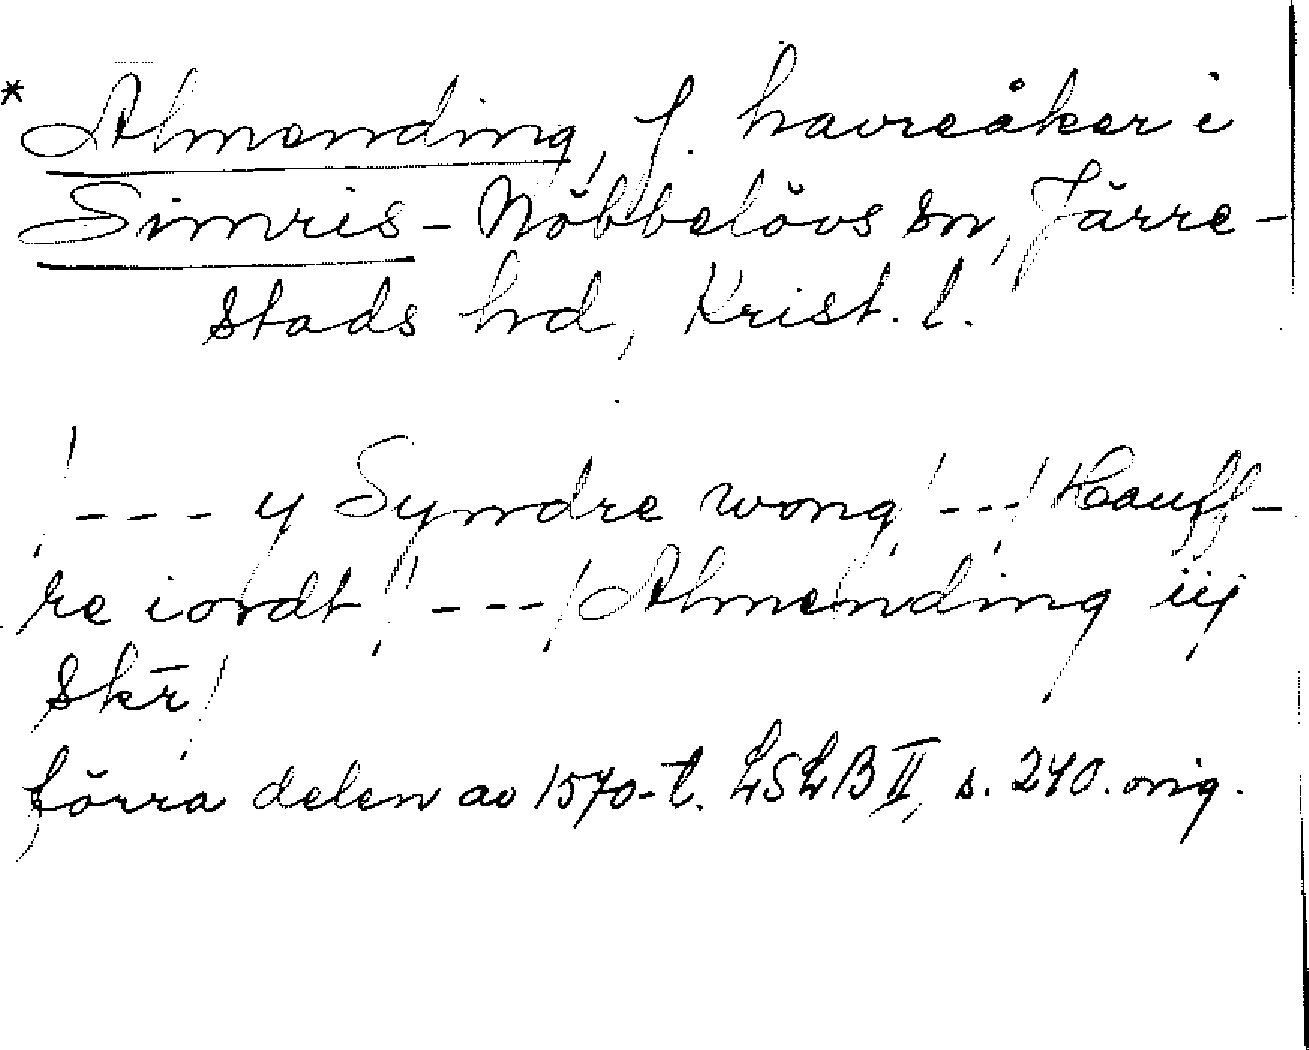 * Almending, f. havreåker i
Simris-Nöbbelövs sn, Järre-
stads hd, Krist. l.
/--- y Syndre wong /---/ Hauff-
re iordt /---/ Almending iij
skr̄/
förra delen av 1570-t. LSLB II, s. 240. orig.